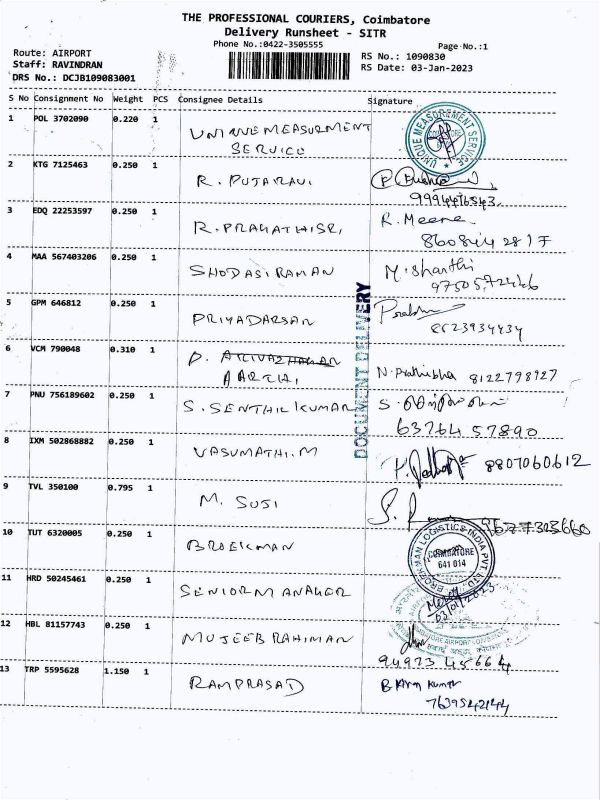 THE PROFESSIONAL COURIERS, Coimbatore
Delivery Runsheet - SITR
Phone No.:0422-3505555
Page No.:1
Route: AIRPORT
Staff: RAVINDRAN
DRS No.: DCJB109083001
RS No.: 1090830
RS Date: 03-Jan-2023
S No Consignment No Weight PCS Consignee Details Signature
1 POL 3702090 0.220 1 UNIQUE MEASURMENT
SERVICE
UNIQUE MEASUREMENT SERVICE
2 KTG 7125463 0.250 1 R. PUJARAVI.
3 EDQ 22253597 0.250 1 R. PRAHATHISRI, R. Meena
4 MAA 567403206 0.250 1 SHODASIRAMAN M. Shanthi
5 GPM 646812 0.250 1 PRIYADARSAN Prabhu
8623934434
DOCUMENT DELIVERY
6 VCM 790048 0.310 1 P.
AARTHI, N. Prathibha 8122798927
7 PNU 756189602 0.250 1 S. SENTHIL KUMAR S.
63764 57890
8 IXM 502868882 0.250 1 VASUMATHI.M 8807060612
9 TVL 350100 0.795 1 M. SUJI
10 TUT 6320005 0.250 1 BROEKMAN
BROEKMAN LOGISTICS INDIA PVT. LTD
COIMBATORE
641 014
11 HRD 50245461 0.250 1 SENIOR MANAGER
12 HBL 81157743 0.250 1 MUJEEB RAHIMAN
94923 45664
13 TRP 5595628 1.150 1 RAMPRASAD
7639542144